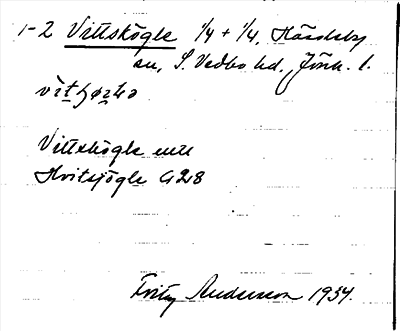 1-2 Vittskögle 1/4 + 1/4, Häradsby
sn, S. Vedbo hd., Jönk. l.
Vittskögle
Hvitsjögle G 28
Fritz Andersson 1934.